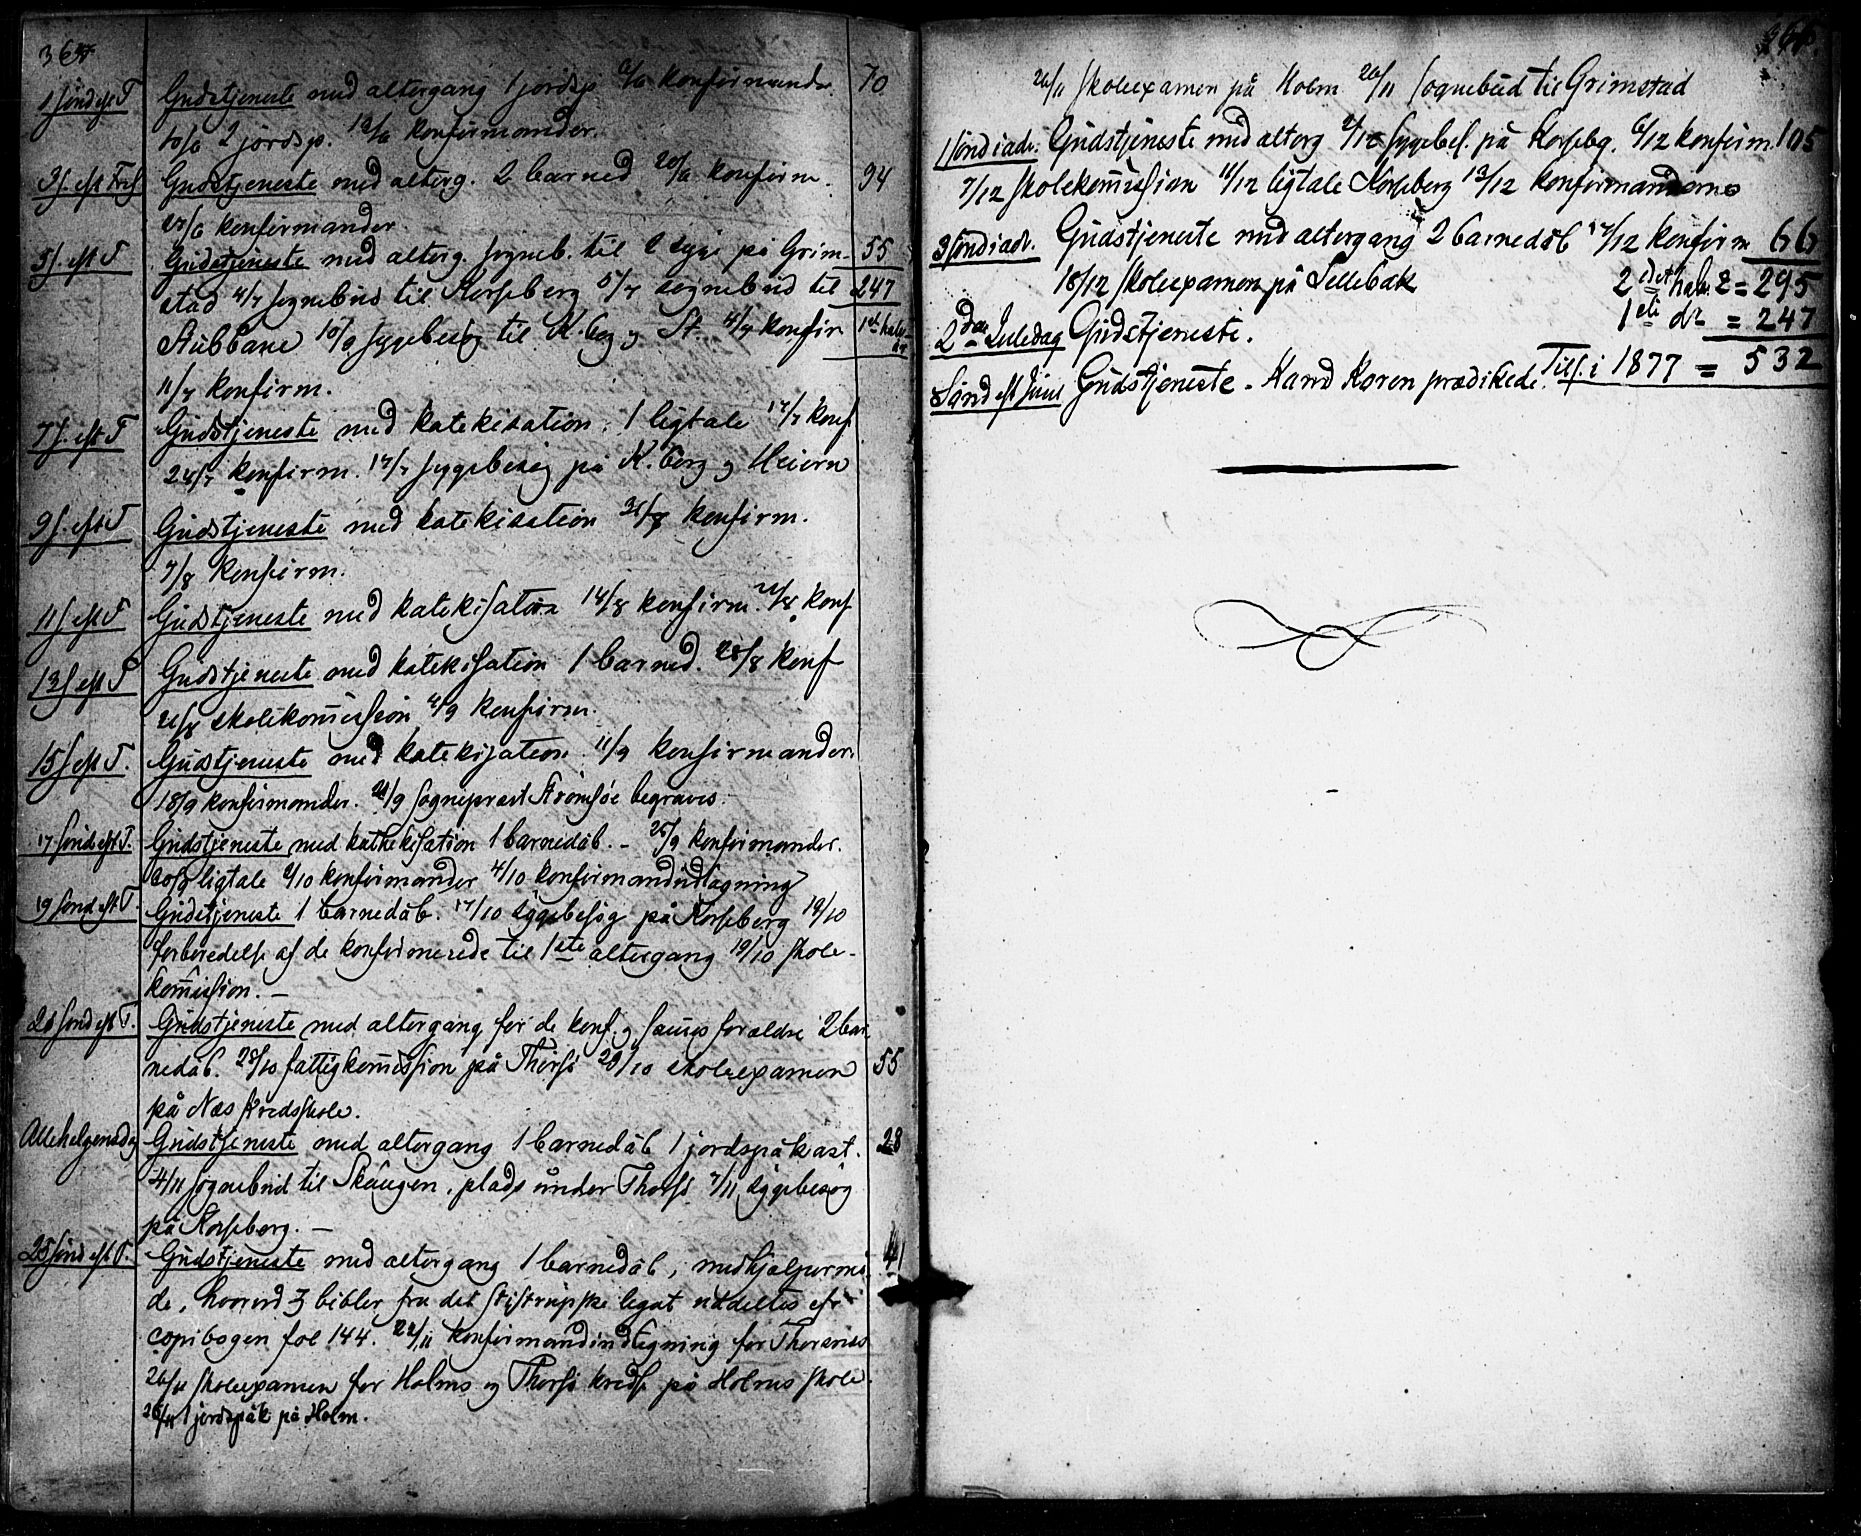 364
1 sønd eft T Gudstjeneste med altergang 1 jordsp 6/6 konfirmander 70
10/6 2 jordsp. 13/6 konfirmander.
3 s. eft Tref Gudstjeneste med alterg. 2 barned 20/6 konfirm. 94
27/6 konfirmander
5 s. eft T Gudstjeneste med alterg. sogneb. til 2 syge på Grim- 55
stad 4/7 sognebud til Korseberg 5/7 sognebud til 247
Stubbane 10/7 sygebesøg til K.berg og St. 4/7 konfir 1ste halv
11/7 konfirm.
7 s. eft T Gudstjeneste med katekisation. 1 ligtale 17/7 konf
24/7 konfirm. 17/7 sygebesøg på K.berg og Heiern
9 s. eft T Gudstjeneste med katekisation 31/7 konfirm.
7/8 konfirm.
11 s eft T Gudstjeneste med katekisation 14/8 konfirm. 21/8 konf
13 s eft T Gudstjeneste med katekisation 1 barned. 28/8 konf
skolekomission 4/9 konfirm.
15 s eft T. Gudstjeneste med katekisation 11/9 konfirmander.
18/9 konfirmander. 21/9 sogneprest Strømsøe begraves.
17 sønd eft T. Gudstjeneste med kathekisation 1 barnedåb. - 25/9 konfirmander.
ligtale 2/10 konfirmander 4/10 konfirmandudtagning
19 sønd eft T. Gudstjeneste 1 barnedåb. 17/10 sygebesøg på Korseberg 19/10
forberedelse af de konfirmerede til 1ste altergang 19/10 skole-
komission. -
21 sønd eft T. Gudstjeneste med altergang for de konf. og sammes forældre 2 bar
nedåb. 28/10 fattigkomission på Thorsø 29/10 skoleexamen 55
på Næs Kredsskole.
Allehelgensdag Gudstjeneste med altergang 1 barnedåb 1 jordspåkast. 28
4/11 sognebud til Skaugen, plads under Thorsø 7/11 sygebesøg
på Korseberg. -
25 sønd eft T. Gudstjeneste med altergang 1 barnedåb, medhjælpermø 41
de, hvorved 3 bibler fra det Stistrupske legat uddeltes efr
copibogen fol 144. 22/11 konfirmandindtegning for Thorsnæs
26/11 skoleexamen for Holms og Thorsø kreds på Holms skole.
26/11 1 jordspåk på Holm.
26/11 skoleexamen på Holm 26/11 sognebud til Grimstad
1 sønd i adv. Gudstjeneste med alterg 2/12 sygebes. på Korsebg. 6/12 konfirm. 105
7/12 skolekomission 11/12 ligtale Korseberg 13/12 konfirmanderne
3 sønd i adv. Gudstjeneste med altergang 2 barnedåb 17/12 konfirm 66
18/12 skoleexamen på Sellebak 2det halv = 295
2den Juledag Gudstjeneste. 1ste do = 247
Sønd eft Juul Gudstjeneste - Kand Koren prædikede. Tils. i 1877 = 532